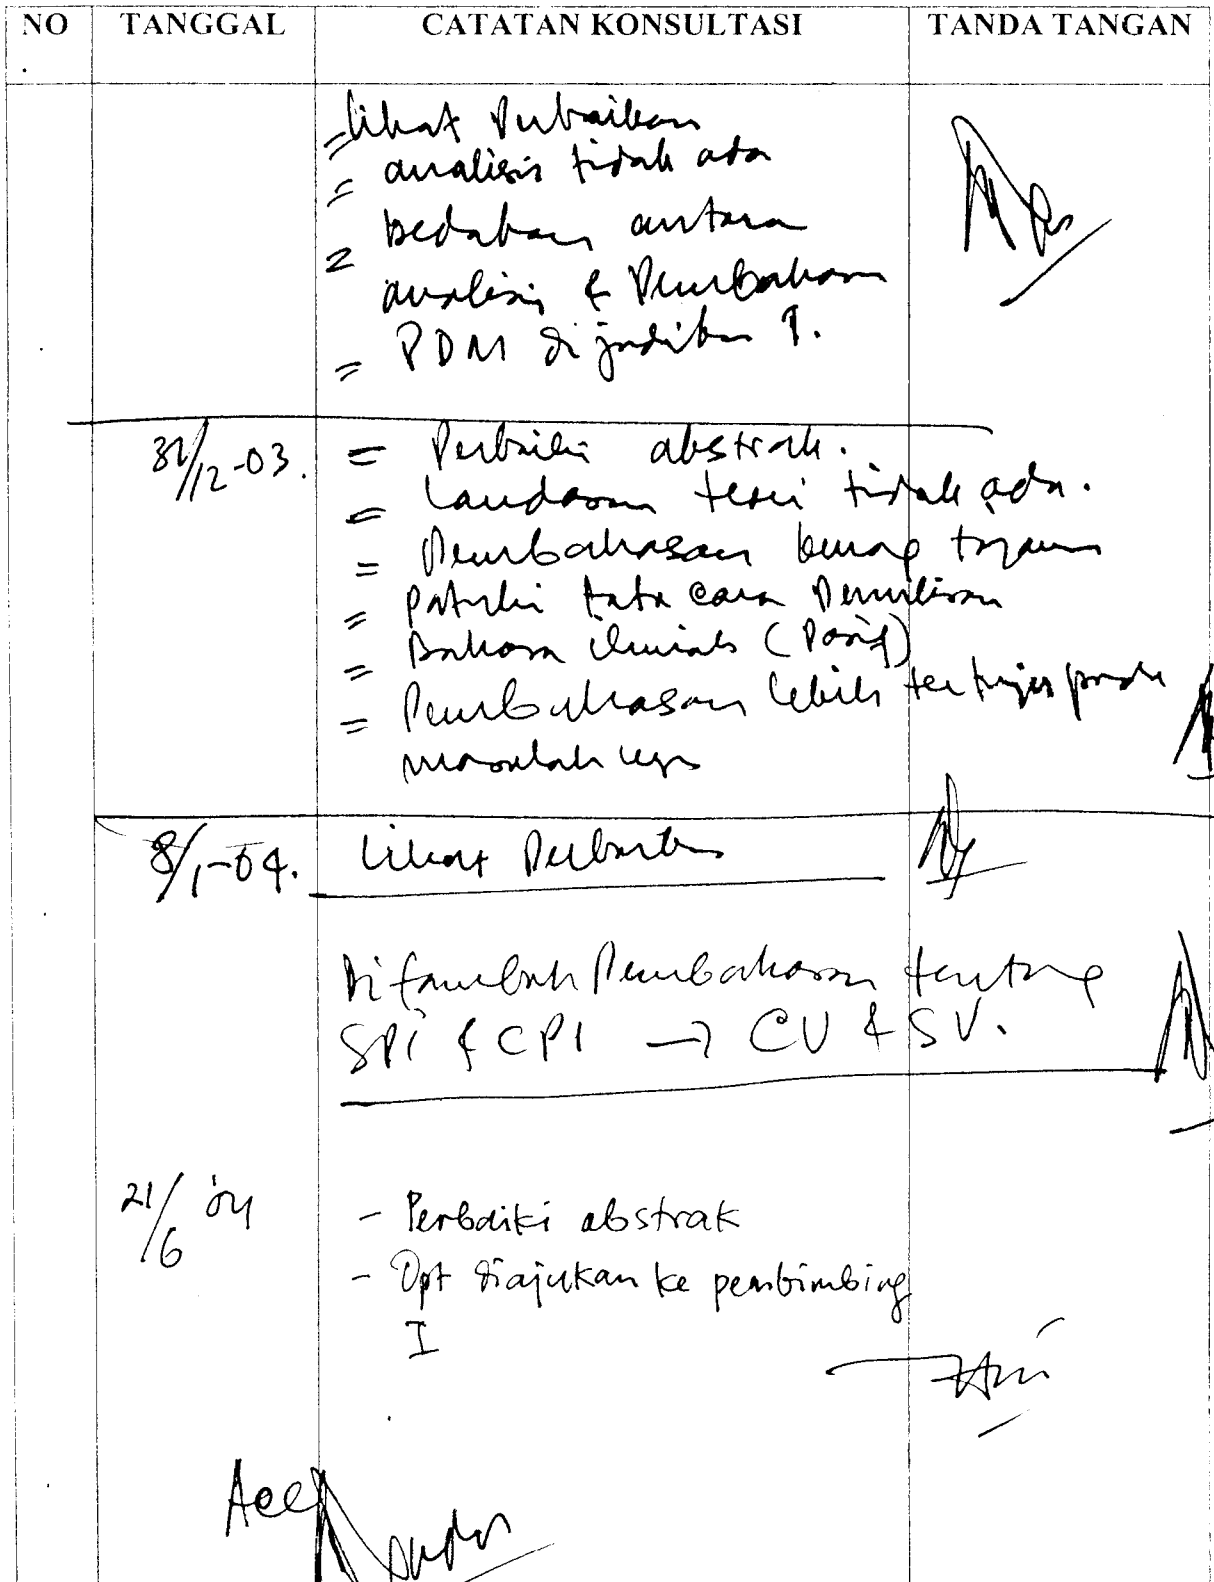 NO. TANGGAL CATATAN KONSULTASI TANDA TANGAN
= lihat Perbaikan
= analisis tidak ada
= bedakan antara
analisis & Pembahasan
= PDM dijadikan 1.
31/12-03. = Perbaiki abstrak.
= Landasan teori tidak ada.
= Pembahasan kurang tajam
= patuhi tata cara Penulisan
= Bahasa ilmiah (Pasif)
= Pembahasan lebih tertuju pada
masalah
8/1-04. Lihat Perbaikan
Ditambah Pembahasan tentang
SPI & CPI → CV & SV.
21/6 '04 - Perbaiki abstrak
- Dpt diajukan ke pembimbing
I
Acc